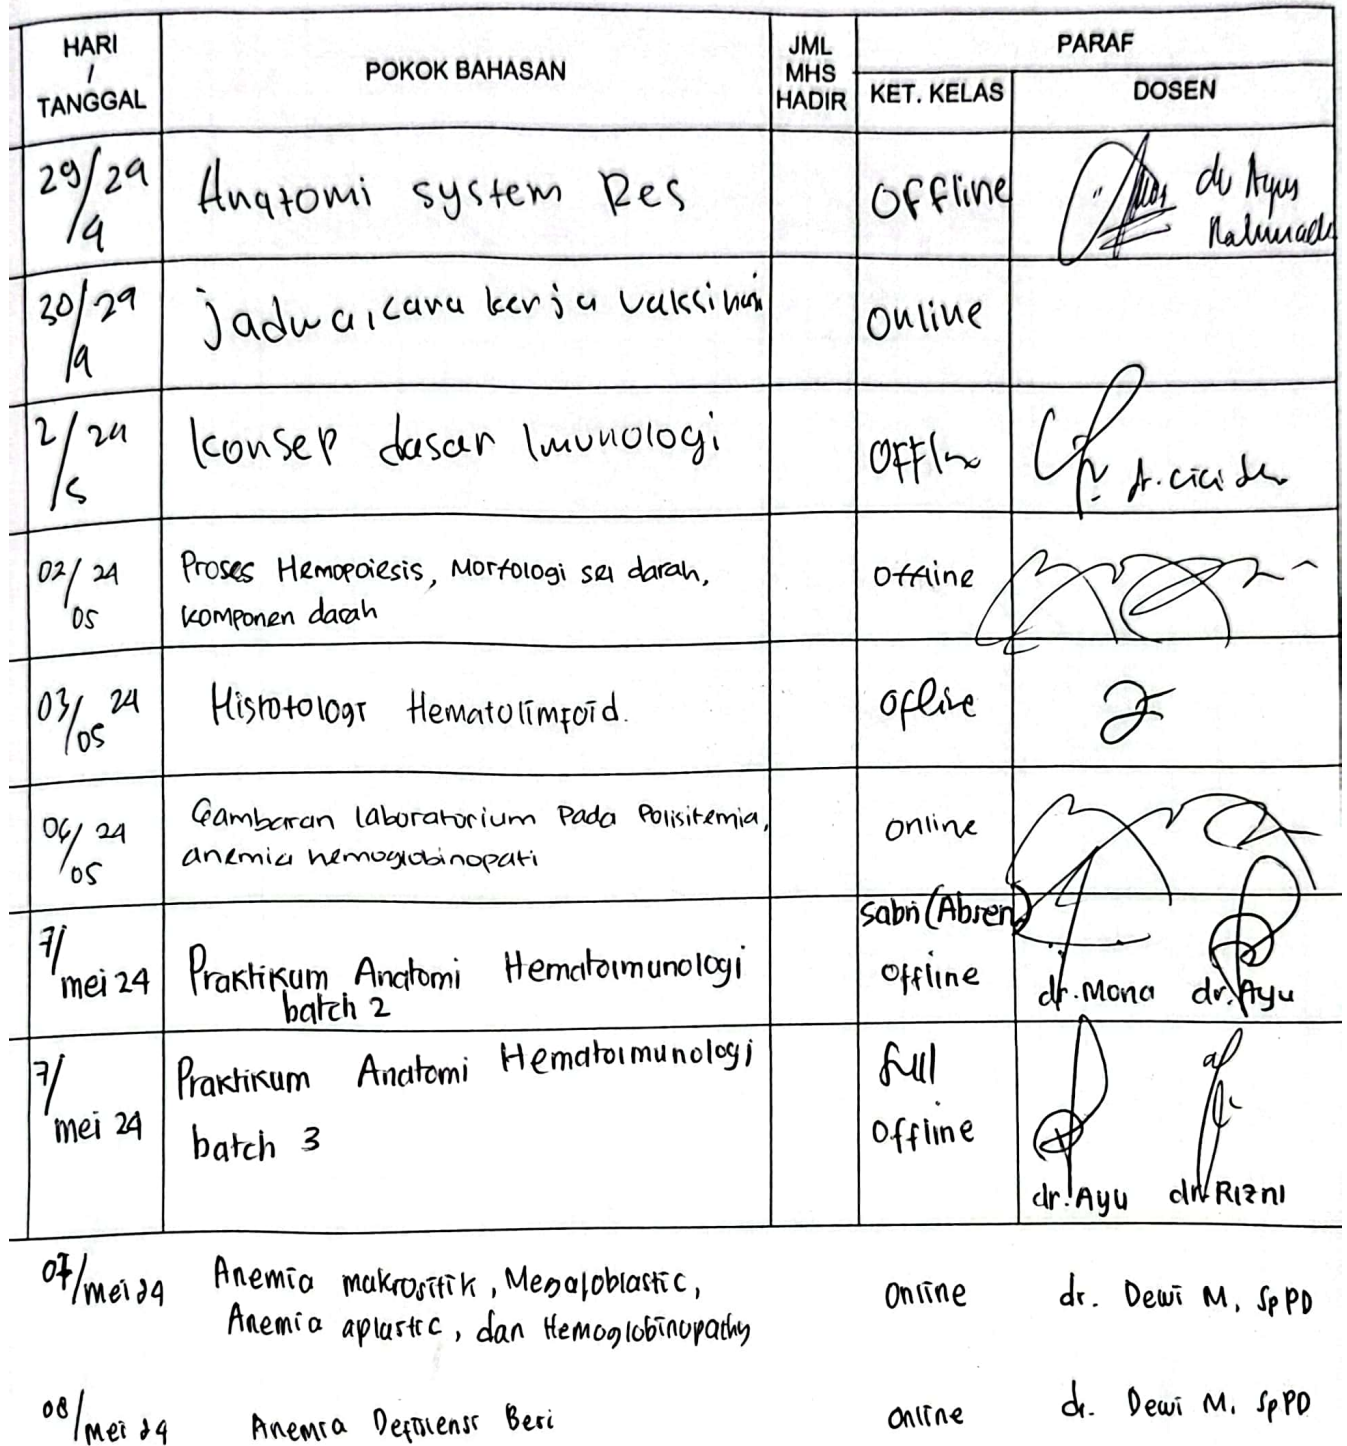 HARI
/
TANGGAL
POKOK BAHASAN
JML
MHS
HADIR
PARAF
KET. KELAS
DOSEN
29/24
/4
Anatomi system Res
Offline
dr Ayu
30/24
/4
jadwal, cara kerja vaksinasi
Online
2/24
/5
Konsep dasar Imunologi
Offline
dr. cici
02/24
05
Proses Hemopoiesis, Morfologi sel darah,
komponen darah
Offline
03/24
/05
Histologi Hematolimfoid.
Offline
06/24
/05
Gambaran laboratorium Pada Polisitemia,
anemia hemoglobinopati
Online
7/
mei 24
Praktikum Anatomi Hematoimunologi
batch 2
Sabri (Absen)
Offline
dr. Mona dr. Ayu
7/
mei 24
Praktikum Anatomi Hematoimunologi
batch 3
full
Offline
dr. Ayu dr. Rizni
07/mei 24
Anemia makrositik, Megaloblastic,
Anemia aplastic, dan Hemoglobinopathy
Online
dr. Dewi M, SpPD
08/mei 24
Anemia Defisiensi Besi
Online
dr. Dewi M, SpPD